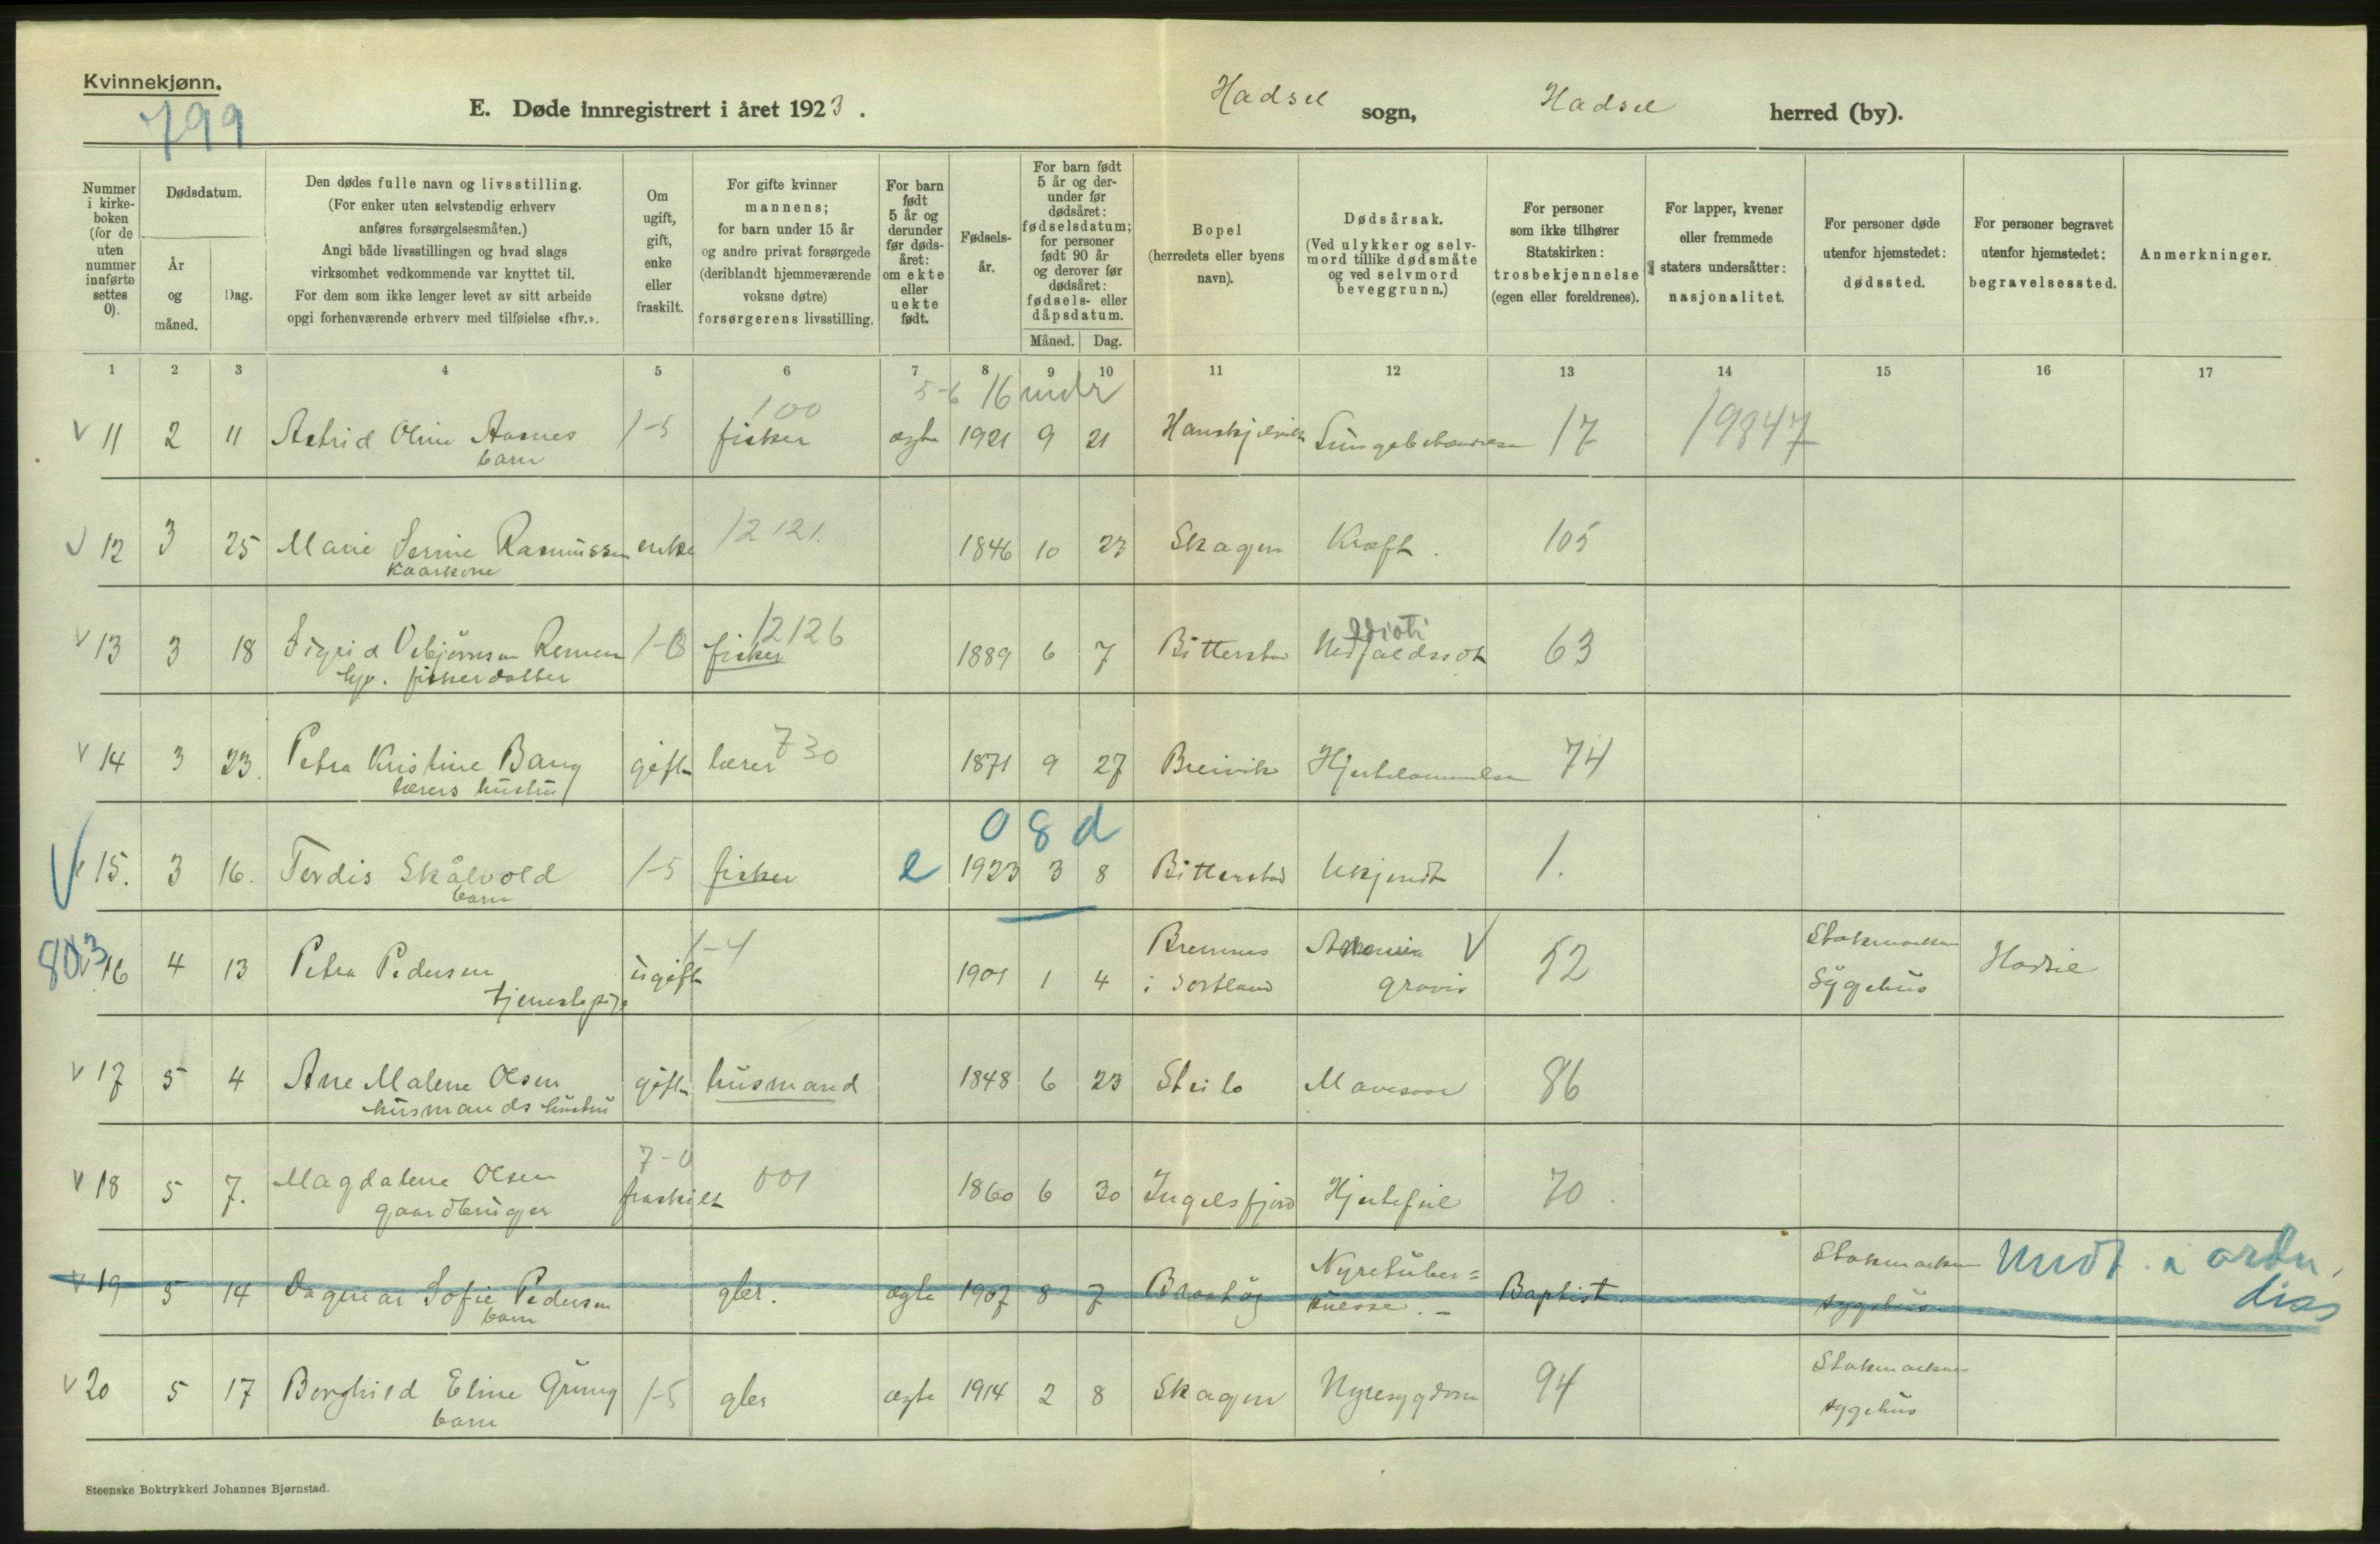 Kvinnekjønn.
799
E. Døde innregistrert i året 1923. Hadsel sogn, Hadsel herred (by).
Nummer i kirke-boken (for de uten nummer innførte settes 0).
Dødsdatum.
År og måned.
Dag.
Den dødes fulle navn og livsstilling.
(For enker uten selvstendig erhverv
anføres forsørgelsesmåten.)
Angi både livsstillingen og hvad slags
virksomhet vedkommende var knyttet til.
For dem som ikke lenger levet av sitt arbeide
opgi forhenværende erhverv med tilføielse «fhv.».
Om ugift, gift, enke eller fraskilt.
For gifte kvinner
mannens;
for barn under 15 år
og andre privat forsørgede
(deriblandt hjemmeværende
voksne døtre)
forsørgerens livsstilling.
For barn født 5 år og derunder før dødsåret: om ekte eller uekte født.
Fødselsår.
For barn født 5 år og derunder før dødsåret: fødselsdatum; for personer født 90 år og derover før dødsåret: fødsels- eller dåpsdatum.
Måned. Dag.
Bopel
(herredets eller byens navn).
Dødsårsak.
(Ved ulykker og selvmord tillike dødsmåte og ved selvmord beveggrunn.)
For personer
som ikke tilhører
Statskirken:
trosbekjennelse
(egen eller foreldrenes).
For lapper, kvener
eller fremmede
staters undersåtter:
nasjonalitet.
For personer døde
utenfor hjemstedet:
dødssted.
For personer begravet
utenfor hjemstedet:
begravelsessted.
Anmerkninger.
1 2 3 4 5 6 7 8 9 10 11 12 13 14 15 16 17
5-6 16 mdr
100
V 11 2 11 Astrid Oline Aasnes 1-5 fisker ægte 1921 9 21 17 19847
barn
V 12 3 25 Marie Serine Rasmussen enke 12121. 1846 10 23 Skagen Kræft. 105
Kaarkone
12126
V 13 3 18 Sigrid fisker 1889 6 7 Bitterstad 63
fiskerdatter
Idioti
V 14 3 23. Petra Kristine Bang gift lærer 730 1871 9 27 Breivik Hjertelammelse 74
lærers hustru
0 8 d
V 15. 3 16. Tordis Skålvold 1-5 fisker e 1923 3 8 Bitterstad Ukjendt 1.
barn
803
1-4
16 4 13 Petra Pedersen ugift 1901 1 4 Bremnes i Sortland gravis V 52 Stokmarknes Sygehus Hadsel
tjenestepige
V 17 5 4 Ane Malene Olsen gift husmand 1848 6 23 Steilo Mavesaar 86
husmands hustru
7-0
V 18 5 7. Magdalene Olsen fraskilt 001 1860 6 30 Ingelsfjord Hjertefeil 70
gaardbruger
V 19 5 14 Dagmar Sofie Pedersen gbr. ægte 1907 8 7 Nyretuber=kulose. - Baptist. Stokmarknes sygehus
barn
V 20 5 17 Borghild Eline Grung 1-5 gbr ægte 1914 2 8 Skagen Nyresygdom 94 Stokmarknes sygehus
barn
Steenske Boktrykkeri Johannes Bjørnstad.